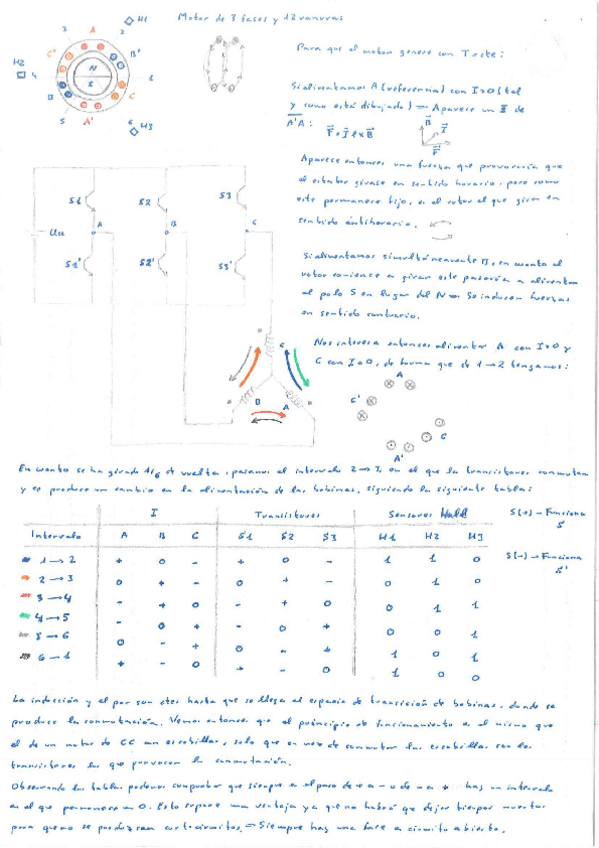 Motor de 3 fases y 12 ranuras
H1
H2
H3
A
B'
C
A'
B
C'
N
S
1
2
3
4
5
6
Para que el motor genere con T=cte:
Si alimentamos A (referencia) con I>0 (tal
y como está dibujado) → Aparece un B de
A'A:
F = I l x B
B
I
F
Aparece entonces una fuerza que provocaría que
el estator girase en sentido horario, pero como
este permanece fijo, es el rotor el que gira en
sentido antihorario.
Si alimentamos simultáneamente B, en cuanto el
rotor comience a girar este pasaría a alimentar
al polo S en lugar del N → Se inducen fuerzas
en sentido contrario.
Nos interesa entonces alimentar A con I>0 y
C con I<0, de forma que de 1→2 tengamos:
S1
S2
S3
A
B
C
S1'
S2'
S3'
C
B
A
A
C'
C
A'
En cuanto se ha girado 1/6 de vuelta, pasamos al intervalo 2→3, en el que los transistores conmutan
y se produce un cambio en la alimentación de las bobinas, siguiendo la siguiente tabla:
I Transistores Sensores Hall
Intervalo A B C S1 S2 S3 H1 H2 H3
1→2 + 0 - + 0 - 1 1 0
2→3 0 + - 0 + - 0 1 0
3→4 - + 0 - + 0 0 1 1
4→5 - 0 + - 0 + 0 0 1
5→6 0 - + 0 - + 1 0 1
6→1 + - 0 + - 0 1 0 0
S(+) → Funciona
S
S(-) → Funciona
S'
La inducción y el par son ctes hasta que se llega al espacio de transición de bobinas, donde se
produce la conmutación. Vemos entonces que el principio de funcionamiento es el mismo que
el de un motor de CC con escobillas, solo que en vez de conmutar las escobillas son los
transistores los que provocan la conmutación.
Observando las tablas podemos comprobar que siempre en el paso de + a - o de - a + hay un intervalo
en el que permanece en 0. Esto supone una ventaja ya que no habrá que dejar tiempos muertos
para que no se produzcan cortocircuitos. → Siempre hay una fase a circuito abierto.